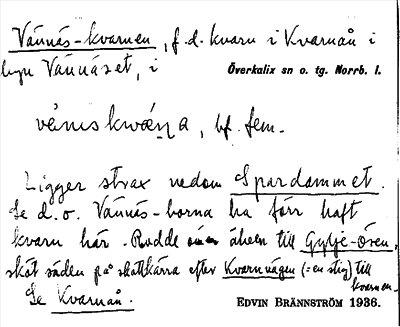 Vännäs-kvarnen, f.d. kvarn i Kvarnån i
byn Vännäset, i Överkalix sn o. tg. Norrb. l.
vȧnɩskwæ̣ṇa, bf. fem.
Ligger strax nedom Spardammet.
Se d.o. Vännäs-borna ha förr haft
kvarn här. Rodde älven till Gylje-ören,
sköt säden på skottkärra efter Kvarnvägen (= en stig) till
kvarnen.
Se Kvarnån. EDVIN BRÄNNSTRÖM 1936.